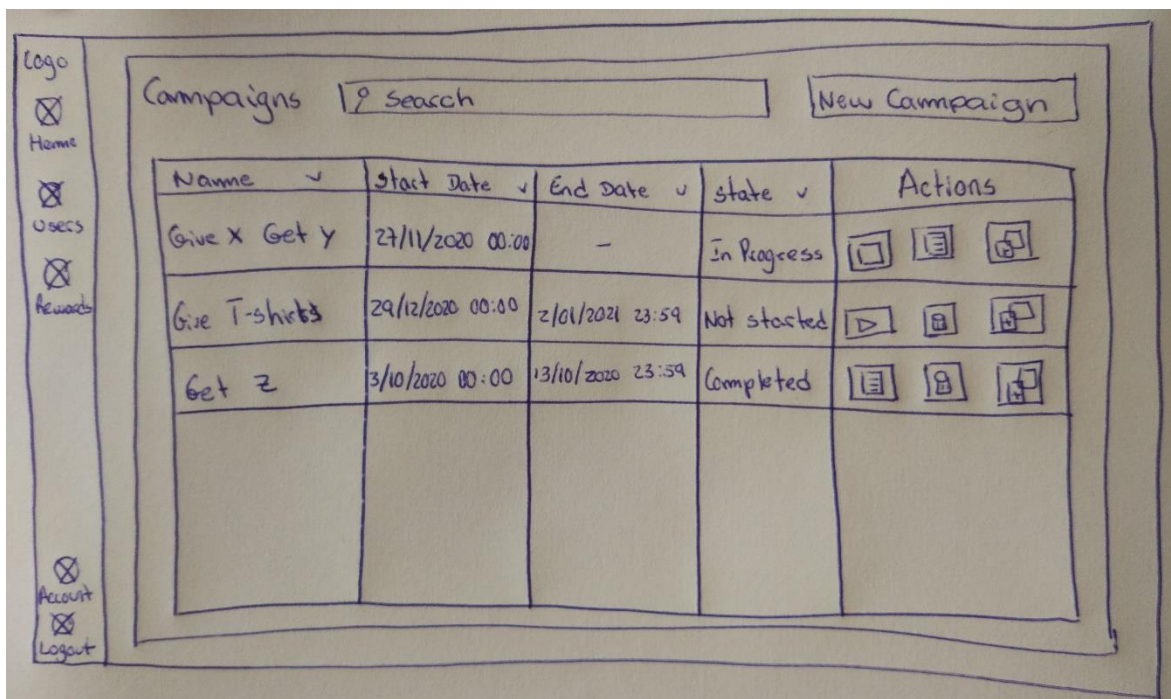 Logo
Home
Users
Rewards
Account
Logout
Campaigns Search New Campaign
Name Start Date End Date State Actions
Give X Get Y 27/11/2020 00:00 - In Progress
Give T-shirts 29/12/2020 00:00 2/01/2021 23:59 Not started
Get Z 3/10/2020 00:00 13/10/2020 23:59 Completed